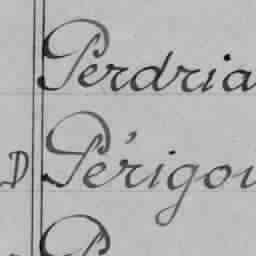 Perdria
D Périgou
P